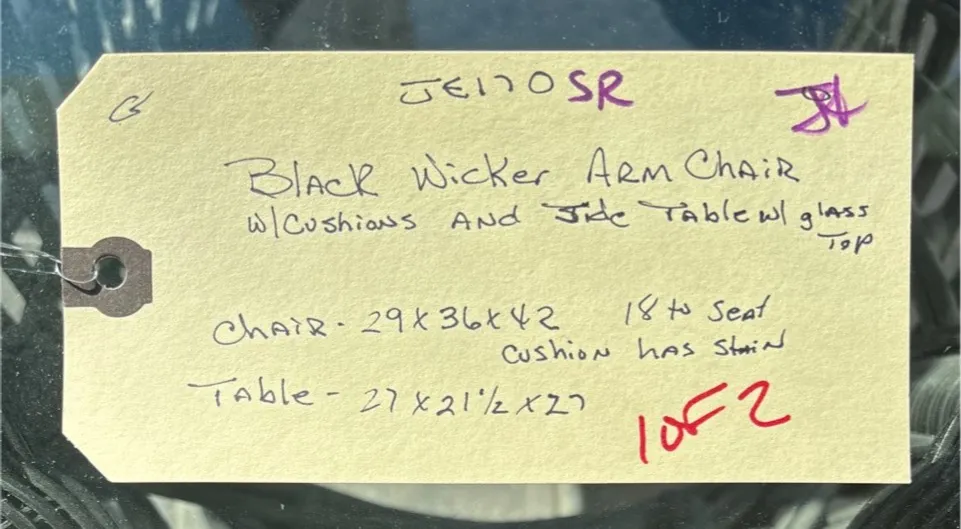 JE170 SR
Black Wicker Arm Chair
w/Cushions And Side Table w/ glass
Top
Chair - 29 x 36 x 42 18 to Seat
Cushion has Stain
Table - 27 x 21 1/2 x 27
1 OF 2